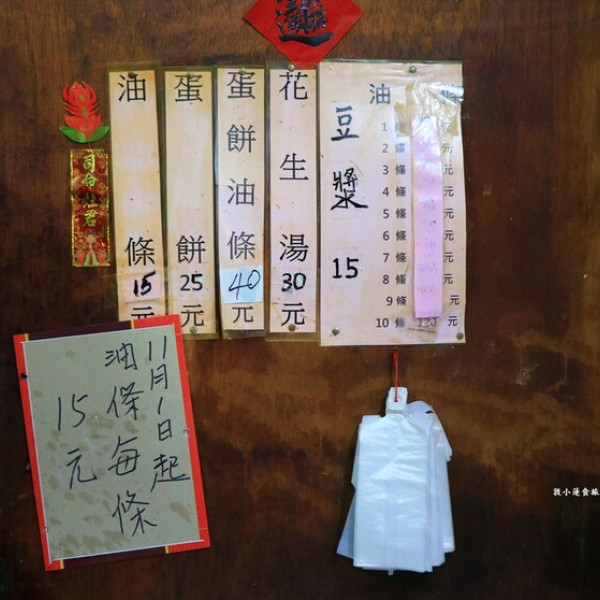 油條15元
蛋餅25元
蛋餅油條40元
花生湯30元
豆漿15
油
1條
2條 元
3條 元
4條 元
5條 元
6條 元
7條 元
8條 元
9條 元
10條 元
11月1日起
油條每條
15元
敦小蓮食旅